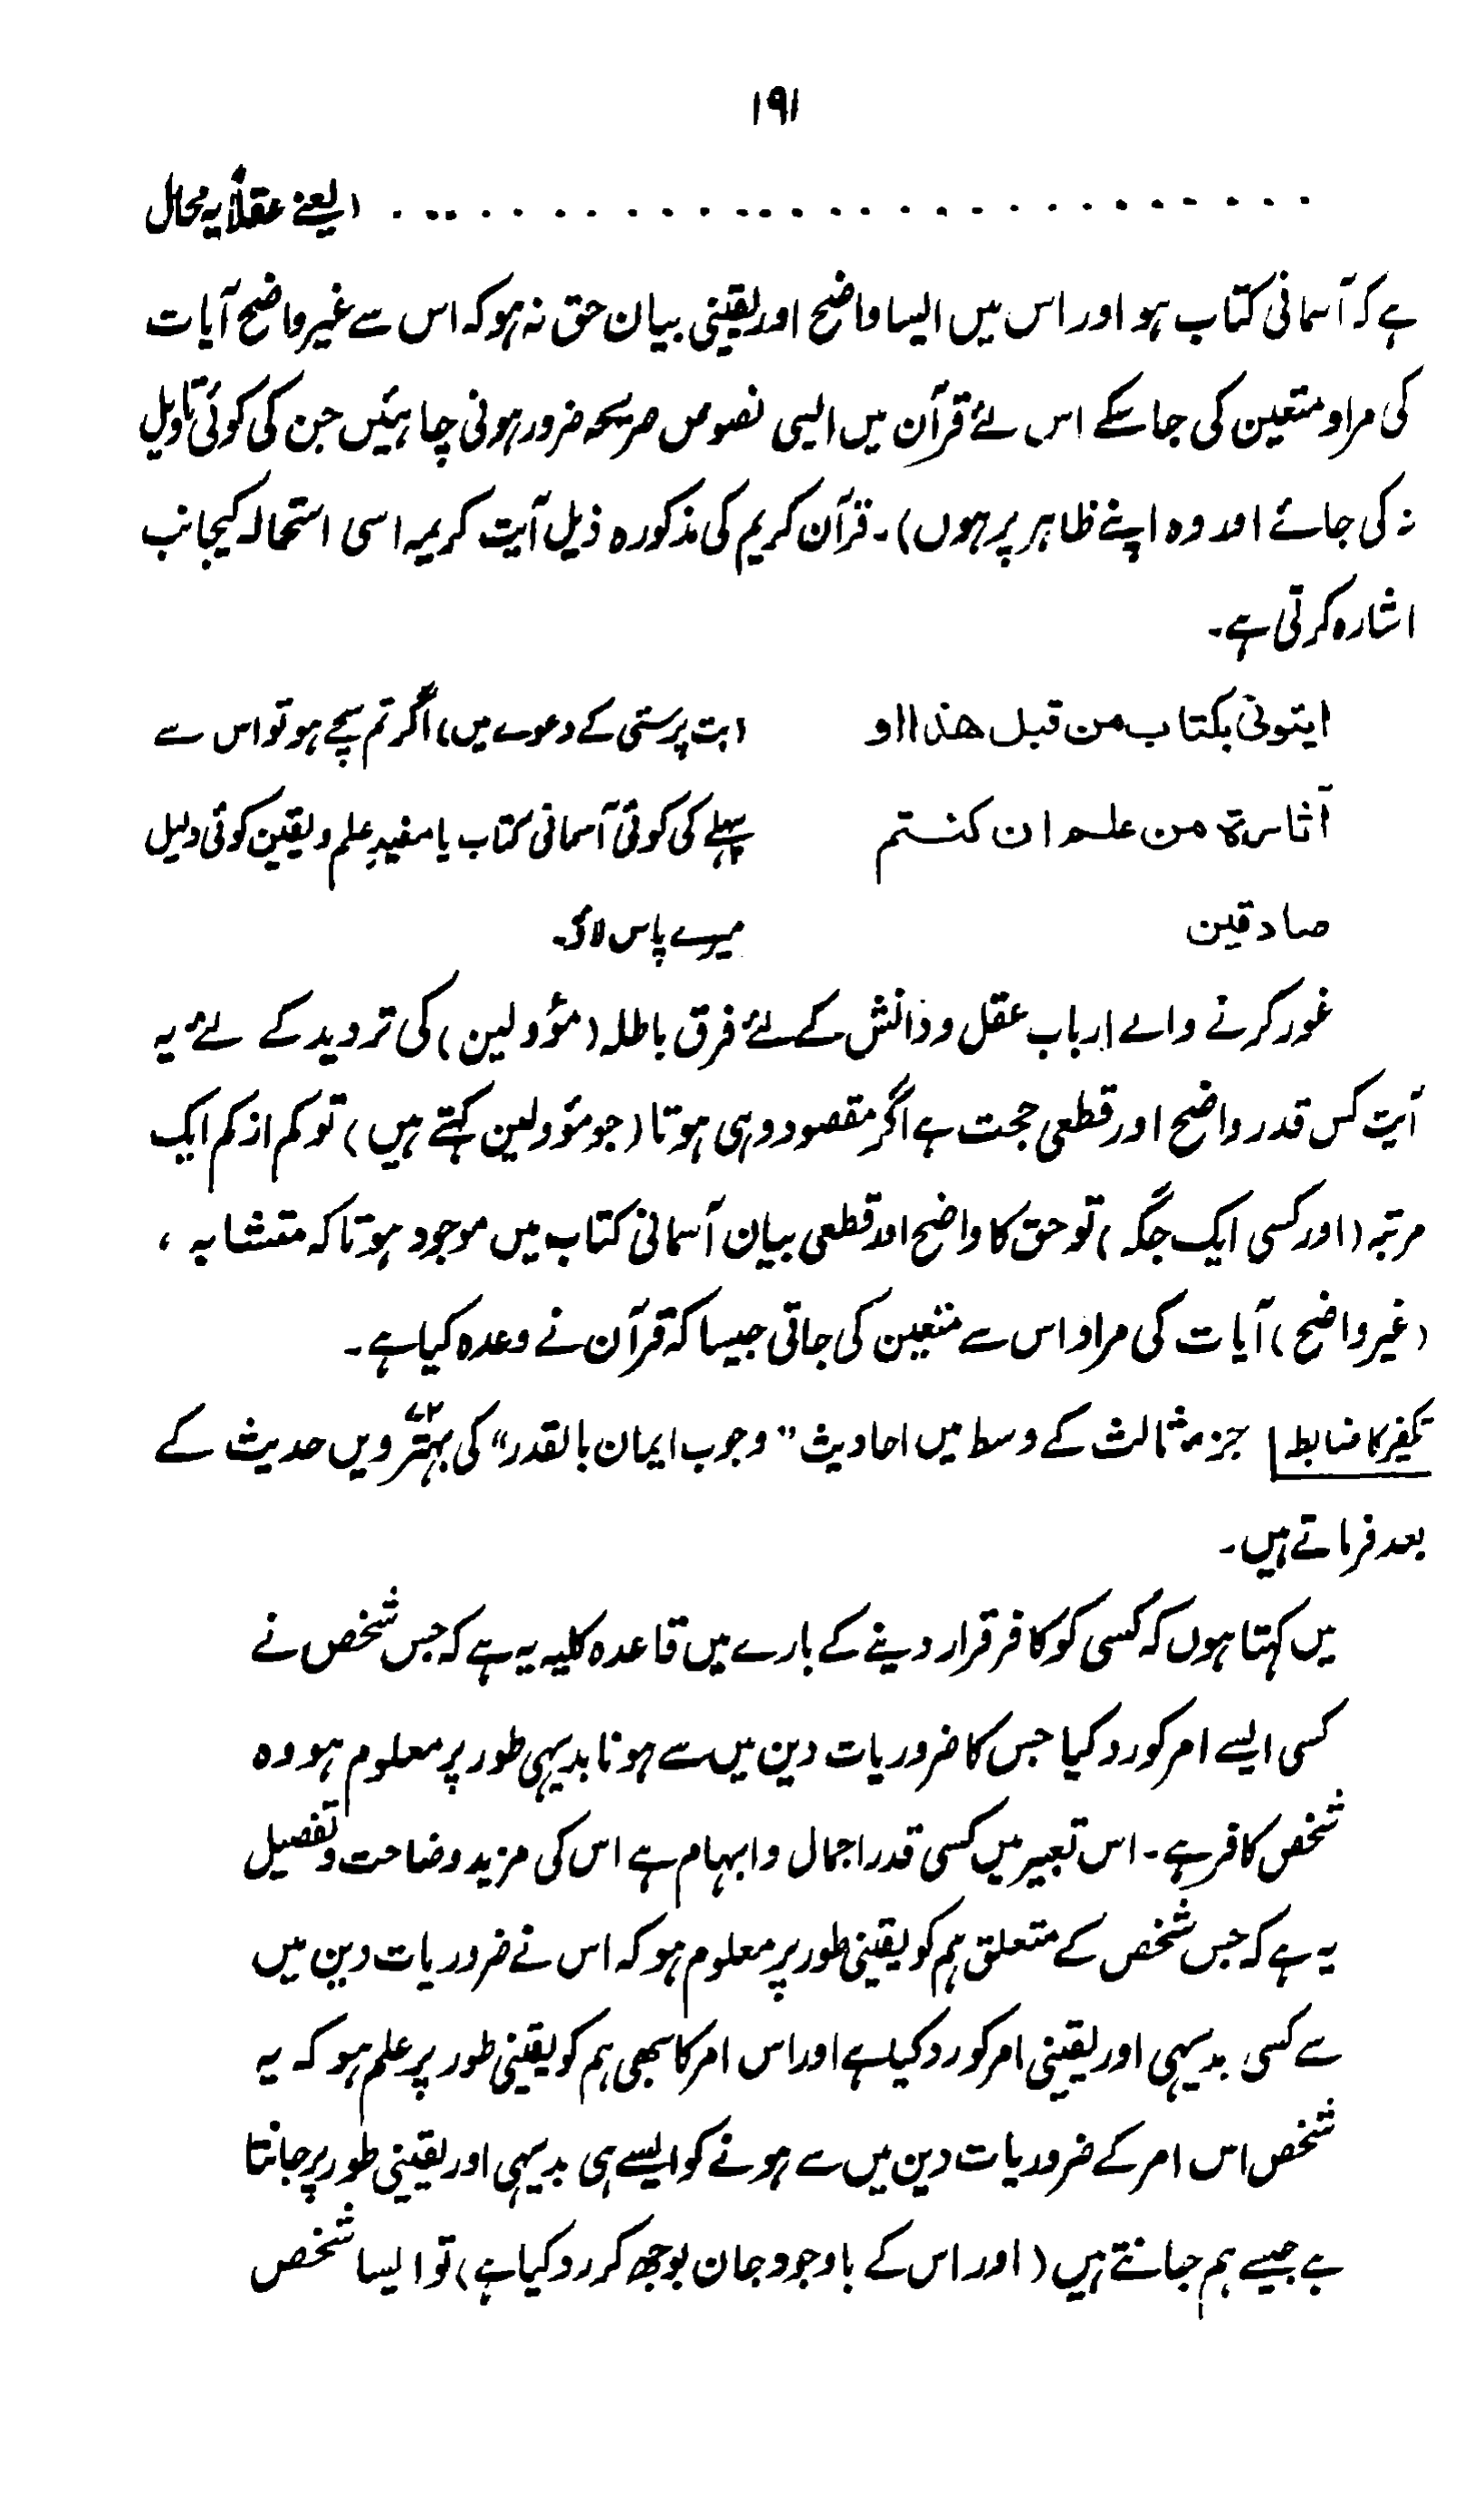 ۱۹۱
. . . . . . . . . . . . . . . . . . . . . . . . . . . . (یعنے عقلاً یہ محال
ہے کہ آسمانی کتاب ہو اور اس میں ایسا واضح اور یقینی بیان حق نہ ہو کہ اس سے غیر واضح آیات
کی مراد متعین کی جا سکے اس لئے قرآن میں ایسی نصوص صریحہ ضرور ہونی چاہئیں جن کی کوئی تاویل
نہ کی جائے اور وہ اپنے ظاہر پر ہوں)۔ قرآن کریم کی مذکورہ ذیل آیت کریمہ اسی استحالہ کیجانب
اشارہ کرتی ہے۔
ایتونی بکتاب من قبل ھذا او (بت پرستی کے دعوے میں) اگر تم سچے ہو تو اس سے
آثارۃ من علم ان کنتم پہلے کی کوئی آسمانی کتاب یا مفیدِ علم و یقین کوئی دلیل
صادقین میرے پاس لاؤ۔
غور کرنے والے ارباب عقل و دانش کے لئے فرق باطلہ (مؤولین) کی تردید کے لئے یہ
آیت کس قدر واضح اور قطعی حجت ہے اگر مقصود وہی ہوتا (جو مؤولین کہتے ہیں) تو کم از کم ایک
مرتبہ (اور کسی ایک جگہ) تو حق کا واضح اور قطعی بیان آسمانی کتاب میں موجود ہوتا کہ متشابہ ،
(غیر واضح) آیات کی مراد اس سے متعین کی جاتی جیسا کہ قرآن نے وعدہ کیا ہے۔
تکفیر کا ضابطہ جزء ثالث کے وسط میں احادیث "وجوب ایمان بالقدر" کی بہتّرویں حدیث کے
بعد فرماتے ہیں۔
میں کہتا ہوں کہ کسی کو کافر قرار دینے کے بارے میں قاعدہ کلیہ یہ ہے کہ جس شخص نے
کسی ایسے امر کو رد کیا جس کا ضروریات دین میں سے ہونا بدیہی طور پر معلوم ہو وہ
شخص کافر ہے۔ اس تعبیر میں کسی قدر اجمال و ابہام ہے اس کی مزید وضاحت و تفصیل
یہ ہے کہ جس شخص کے متعلق ہم کو یقینی طور پر معلوم ہو کہ اس نے ضروریات دین میں
سے کسی بدیہی اور یقینی امر کو رد کیا ہے اور اس امر کا بھی ہم کو یقینی طور پر علم ہو کہ یہ
شخص اس امر کے ضروریات دین میں سے ہونے کو ایسے ہی بدیہی اور یقینی طور پر جانتا
ہے جیسے ہم جانتے ہیں (اور اس کے باوجود جان بوجھ کر رد کیا ہے) تو ایسا شخص